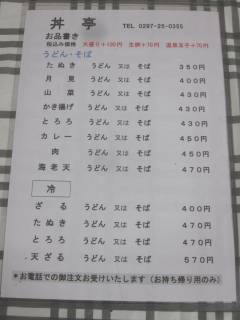 丼亭 TEL 0297-25-0355
お品書き
税込み価格 大盛り+130円 生卵+70円 温泉玉子+70円
うどん・そば
たぬき うどん 又は そば 350円
月見 うどん 又は そば 400円
山菜 うどん 又は そば 430円
かき揚げ うどん 又は そば 430円
とろろ うどん 又は そば 430円
カレー うどん 又は そば 450円
肉 うどん 又は そば 450円
海老天 うどん 又は そば 470円
冷
ざる うどん 又は そば 400円
たぬき うどん 又は そば 470円
とろろ うどん 又は そば 470円
天ざる うどん 又は そば 570円
*お電話での御注文お受けいたします(お持ち帰り用のみ)